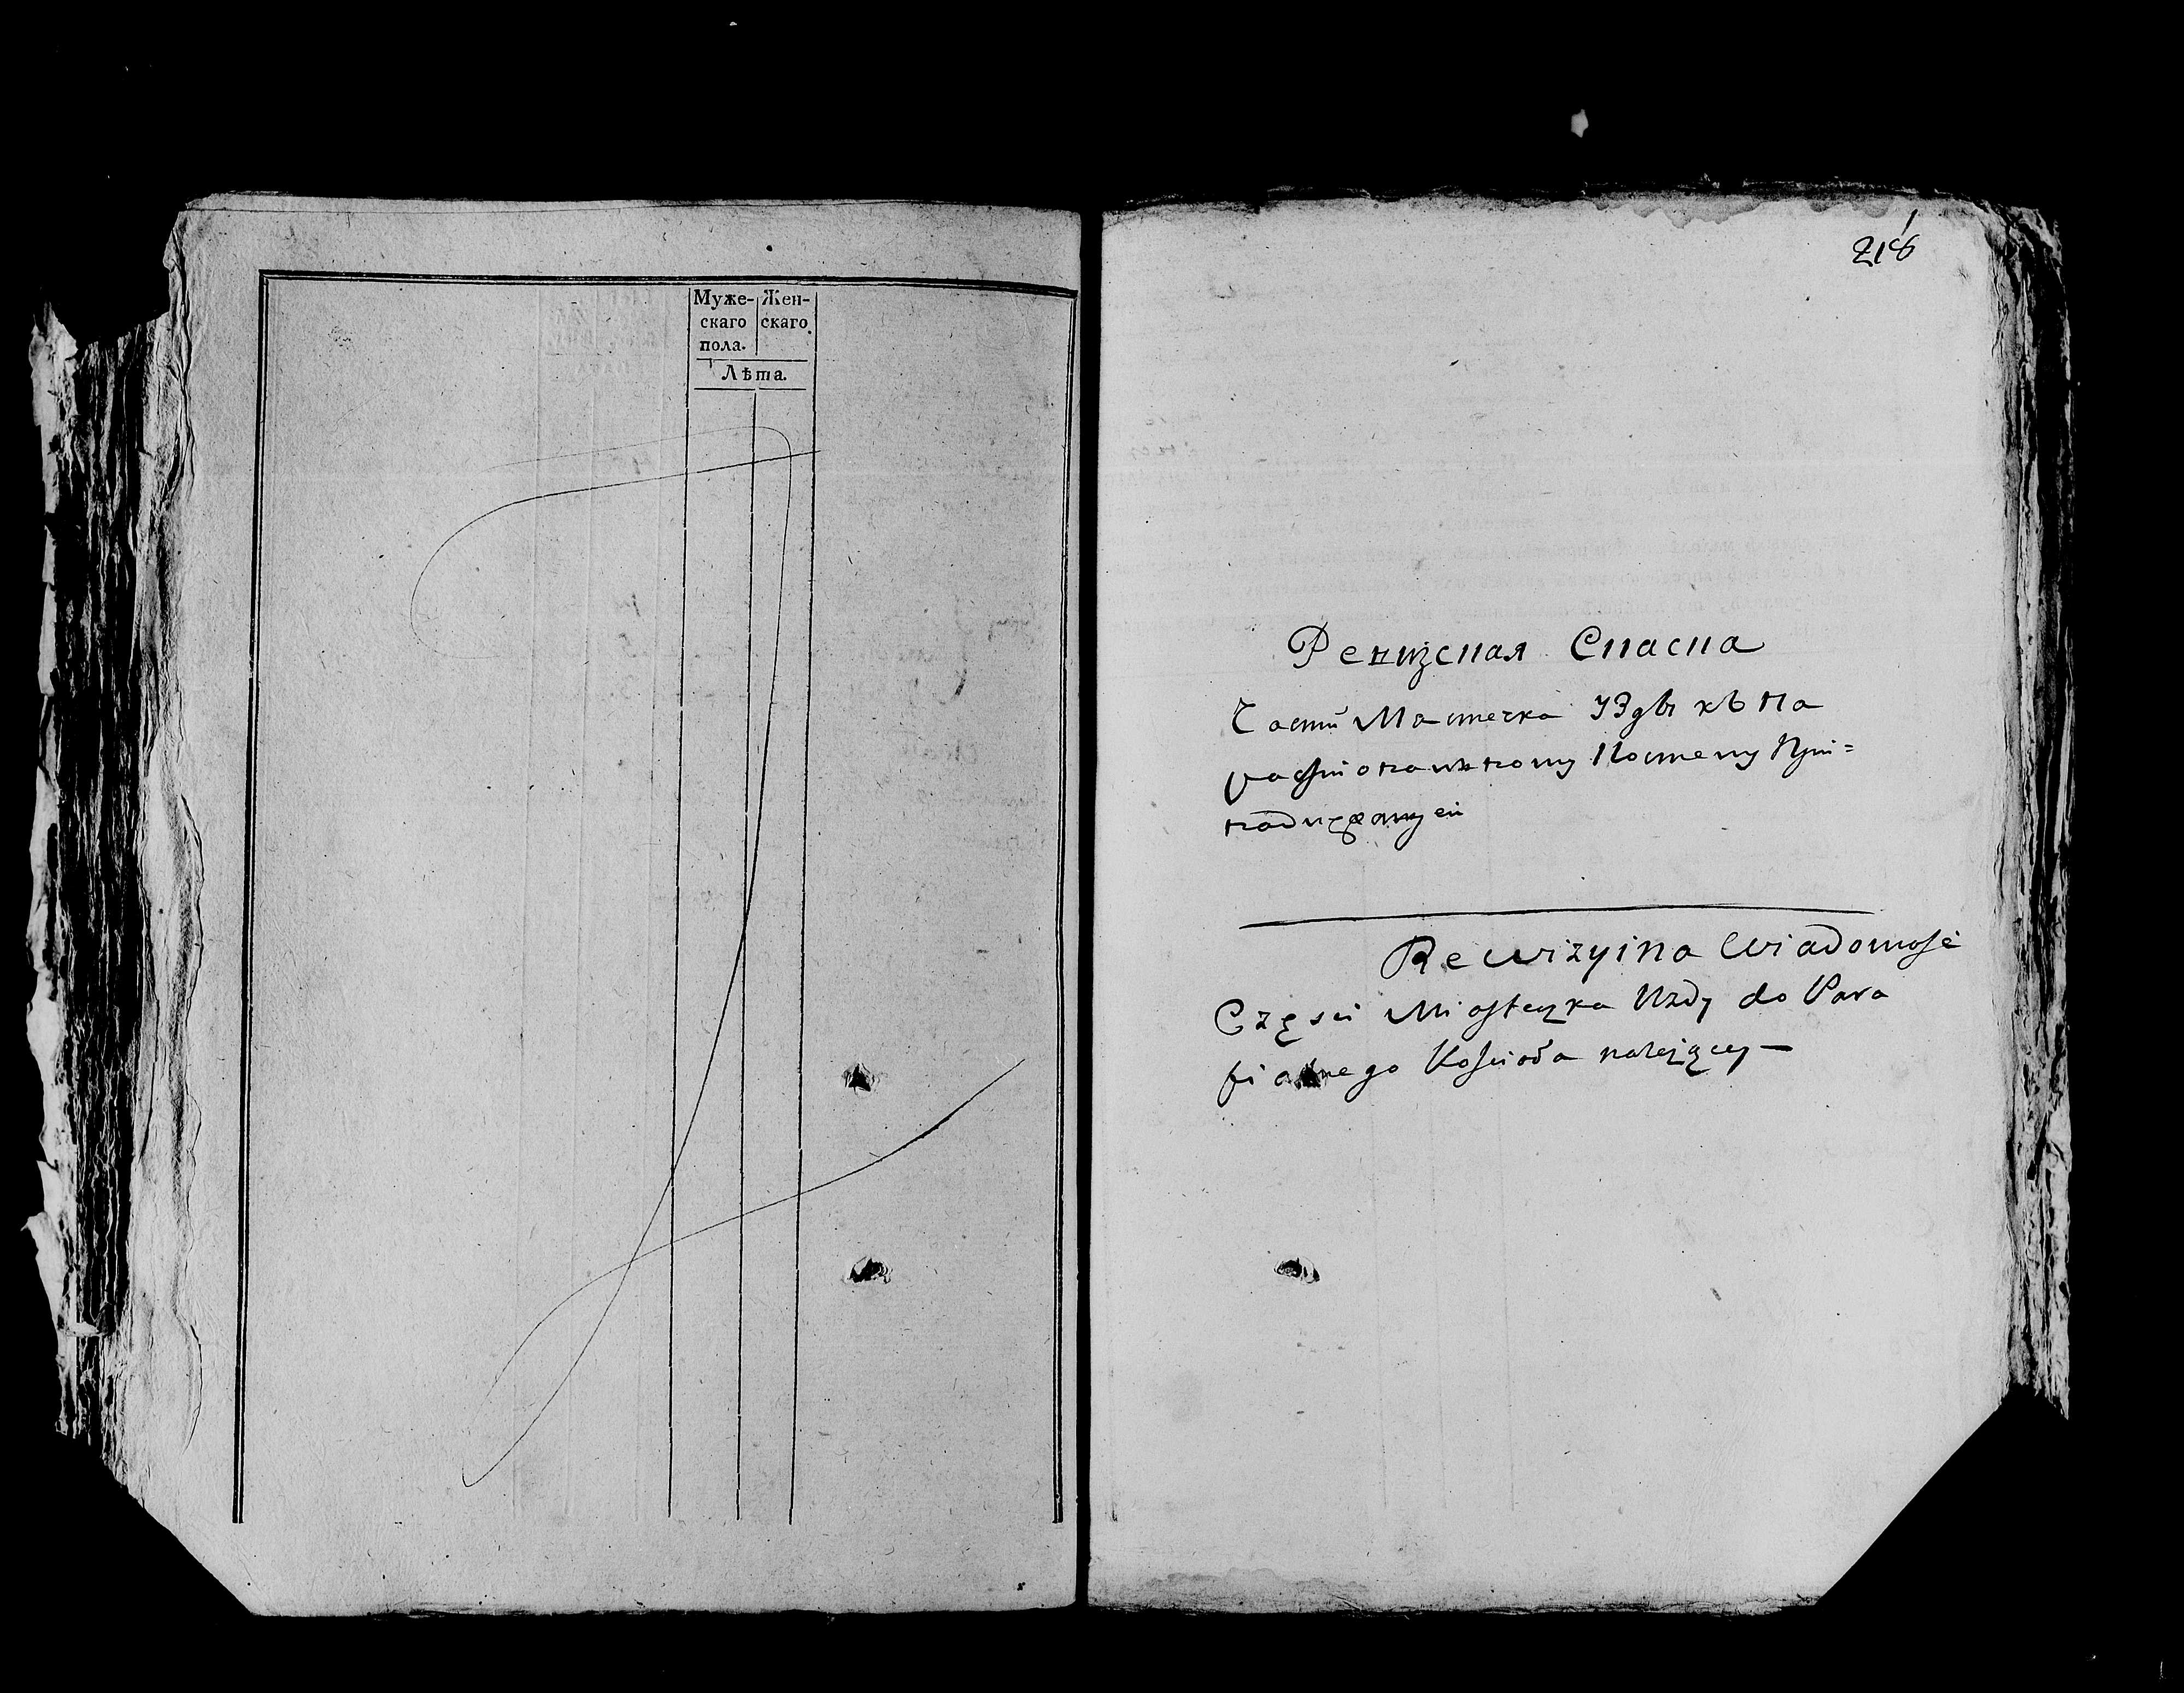 Муже- Жен-
скаго скаго.
пола.
Лѣта.
218
Ревизская Скаска
Части Мастечка Узды къ Па
рафиональному Костелу При=
надлежащей
Rewizyina Wiadomość
Częsci Miasteczka Uzdy do Para
fialnego Kościoła należącey —